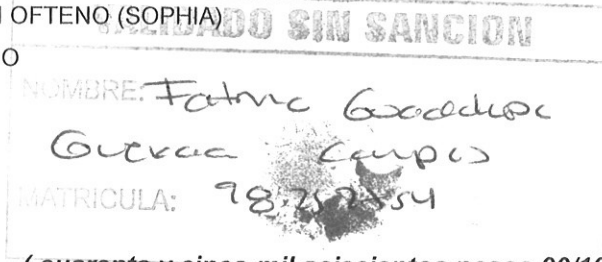 OFTENO (SOPHIA)
VALIDADO SIN SANCION
O
NOMBRE: Fatima Guadalupe
Guevara Campos
MATRICULA:
cuarenta y cinco mil seiscientos pesos 00/10